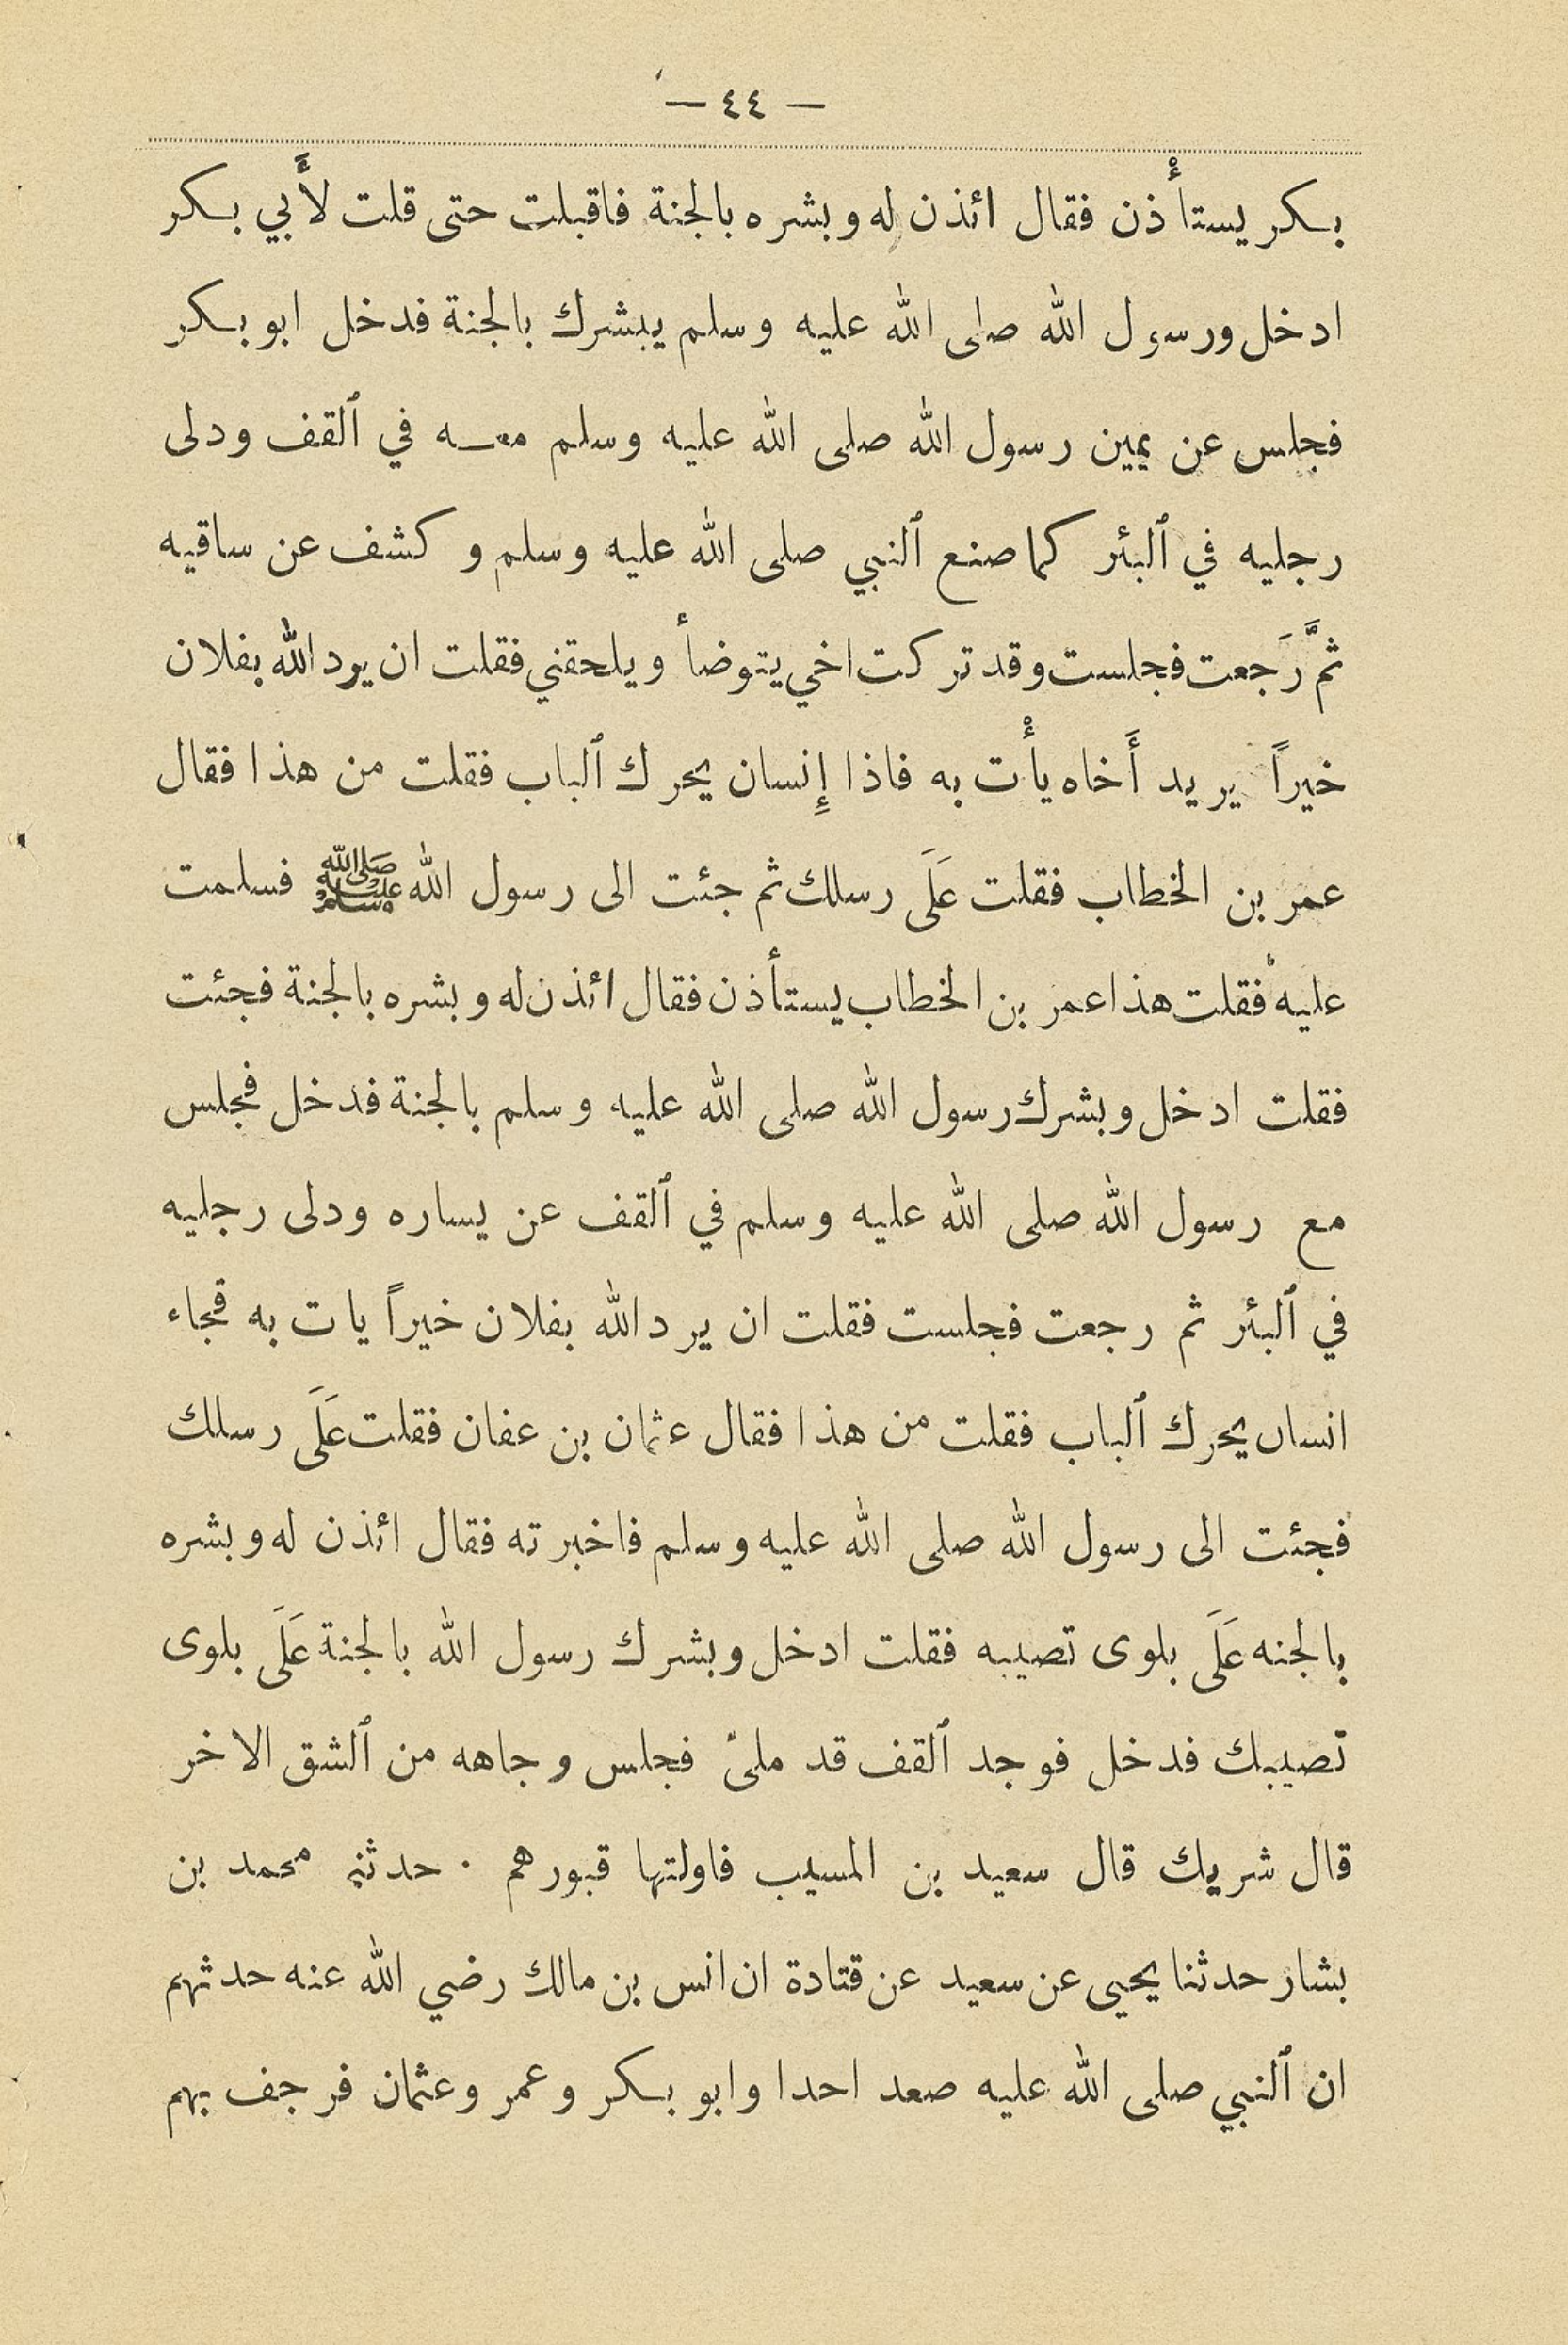 — ٤٤ —
بكر يستأْذن فقال ائذن له وبشره بالجنة فاقبلت حتى قلت لأَبي بكر
ادخل ورسول الله صلى الله عليه وسلم يبشرك بالجنة فدخل ابو بكر
فجلس عن يمين رسول الله صلى الله عليه وسلم معه في ٱلقف ودلى
رجليه في ٱلبئر كما صنع ٱلنبي صلى الله عليه وسلم وكشف عن ساقيه
ثمَّ رَجعت فجلست وقد تركت اخي يتوضأ ويلحقني فقلت ان يرد الله بفلان
خيراً يريد أَخاه يأْت به فاذا إِنسان يحرك ٱلباب فقلت من هذا فقال
عمر بن الخطاب فقلت عَلَى رسلك ثم جئت الى رسول الله ﷺ فسلمت
عليه فقلت هذا عمر بن الخطاب يستأذن فقال ائذن له وبشره بالجنة فجئت
فقلت ادخل وبشرك رسول الله صلى الله عليه وسلم بالجنة فدخل فجلس
مع رسول الله صلى الله عليه وسلم في ٱلقف عن يساره ودلى رجليه
في ٱلبئر ثم رجعت فجلست فقلت ان يرد الله بفلان خيراً يات به فجاء
انسان يحرك ٱلباب فقلت من هذا فقال عثمان بن عفان فقلت عَلَى رسلك
فجئت الى رسول الله صلى الله عليه وسلم فاخبرته فقال ائذن له وبشره
بالجنه عَلَى بلوى تصيبه فقلت ادخل وبشرك رسول الله بالجنة عَلَى بلوى
تصيبك فدخل فوجد ٱلقف قد ملئ فجلس وجاهه من ٱلشق الاخر
قال شريك قال سعيد بن المسيب فاولتها قبورهم · حدثني محمد بن
بشار حدثنا يحيى عن سعيد عن قتادة ان انس بن مالك رضي الله عنه حدثهم
ان ٱلنبي صلى الله عليه صعد احدا وابو بكر وعمر وعثمان فرجف بهم